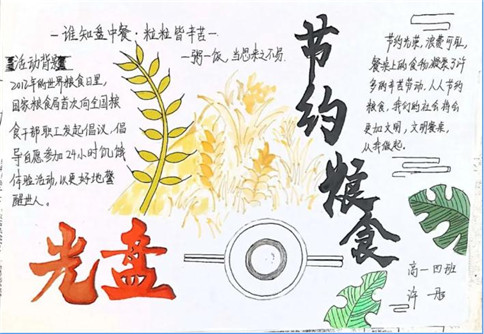 -谁知盘中餐·粒粒皆辛苦-
一粥一饭,当思来之不易.
活动背景
2012年的世界粮食日里,
国家粮食局首次向全国粮
食干部职工发起倡议,倡
导自愿参加24小时饥饿
体验活动,以更好地警
醒世人。
节约粮食
节约光荣,浪费可耻,
餐桌上的食物凝聚了许
多的辛苦劳动,人人节约
粮食,我们的社会将会
更加文明,文明餐桌,
从我做起。
光盘
高一四班
许